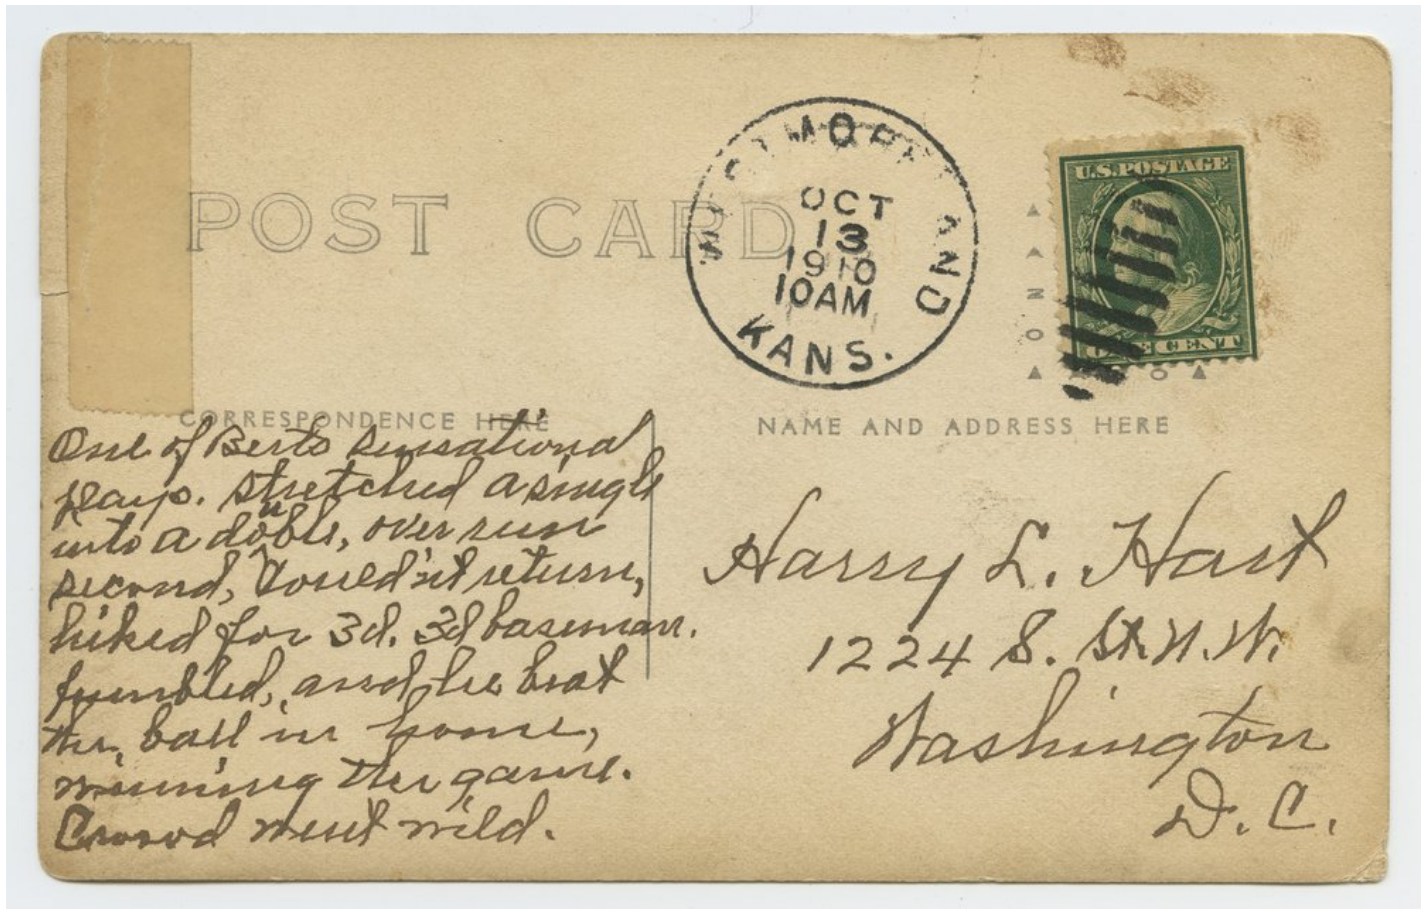 POST CARD
WESTMORELAND
OCT
13
1910
10AM
KANS.
U.S. POSTAGE
ONE CENT
CORRESPONDENCE HERE
NAME AND ADDRESS HERE
One of Berts sensational
plays. Stretched a single
into a double, over run
second, Could'nt return,
hiked for 3d. 3d baseman.
fumbled, and he beat
the ball in home,
winning the game.
Crowd went wild.
Harry L. Hart
1224 S. St. N.W.
Washington
D.C.